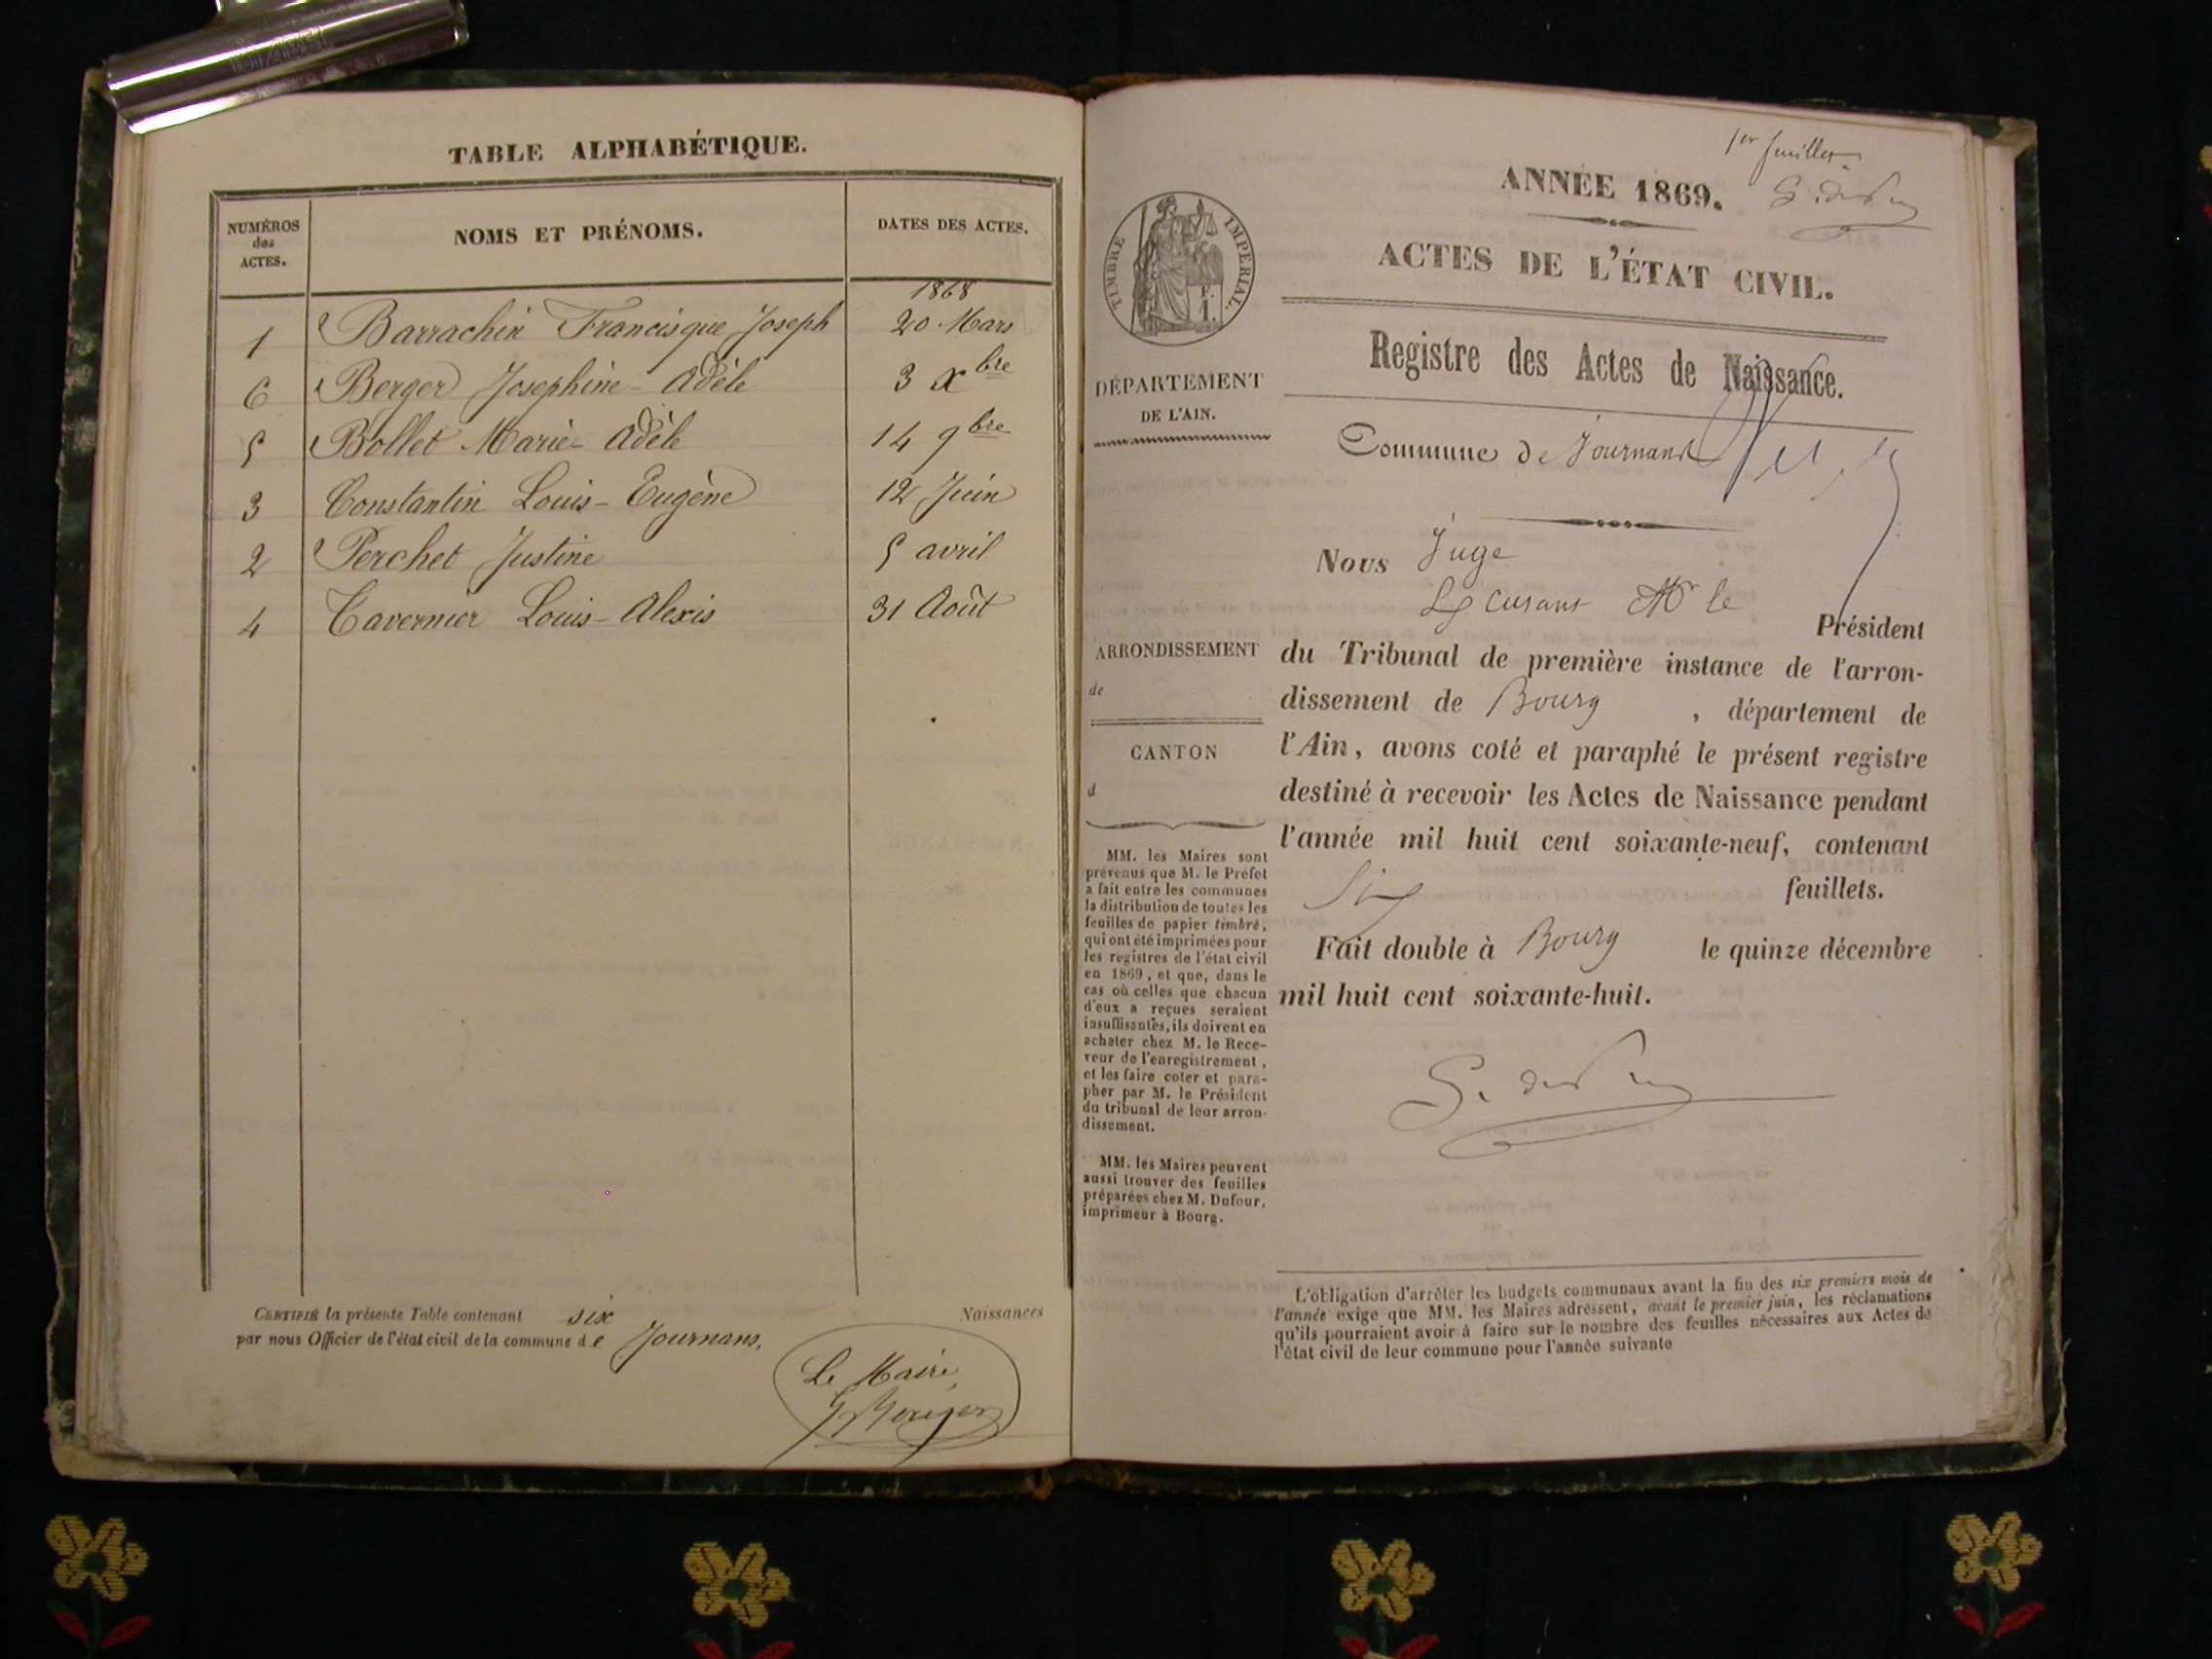 TABLE ALPHABÉTIQUE.
NUMÉROS
des
ACTES.
NOMS ET PRÉNOMS.
DATES DES ACTES.
1868
1 Barrachin Francisque Joseph 20 Mars
6 Berger Josephine-Adèle 3 Xbre
5 Bollet Marie-Adèle 14 9bre
3 Constantin Louis-Eugène 12 Juin
2 Perchet Justine 5 avril
4 Tavernier Louis-Alexis 31 Août
CERTIFIÉ la présente Table contenant six Naissances
par nous Officier de l'état civil de la commune de Journans,
Le Maire,
1er feuillet
ANNÉE 1869.
ACTES DE L'ÉTAT CIVIL.
Registre des Actes de Naissance.
Commune de Journans
TIMBRE IMPÉRIAL.
DÉPARTEMENT
DE L'AIN.
ARRONDISSEMENT
de
CANTON
d
MM. les Maires sont
prévenus que M. le Préfet
a fait entre les communes
la distribution de toutes les
feuilles de papier timbré,
qui ont été imprimées pour
les registres de l'état civil
en 1869, et que, dans le
cas où celles que chacun
d'eux a reçues seraient
insuffisantes, ils doivent en
acheter chez M. le Rece-
veur de l'enregistrement,
et les faire coter et para-
pher par M. le Président
du tribunal de leur arron-
dissement.
MM. les Maires peuvent
aussi trouver des feuilles
préparées chez M. Dufour,
imprimeur à Bourg.
Nous Juge
Mr le
Président
du Tribunal de première instance de l'arron-
dissement de Bourg , département de
l'Ain, avons coté et paraphé le présent registre
destiné à recevoir les Actes de Naissance pendant
l'année mil huit cent soixante-neuf, contenant
Six feuillets.
Fait double à Bourg le quinze décembre
mil huit cent soixante-huit.
L'obligation d'arrêter les budgets communaux avant la fin des six premiers mois de
l'année exige que MM. les Maires adressent, avant le premier juin, les réclamations
qu'ils pourraient avoir à faire sur le nombre des feuilles nécessaires aux Actes de
l'état civil de leur commune pour l'année suivante